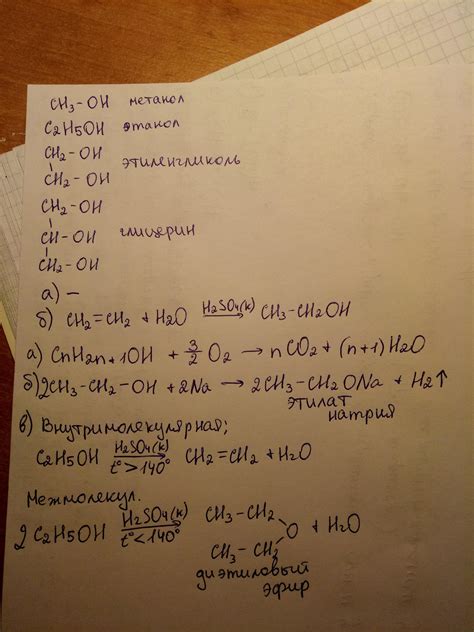 CH3-OH метанол
C2H5OH этанол
CH2-OH
CH2-OH этиленгликоль
CH2-OH
CH-OH глицерин
CH2-OH
а) —
б) CH2=CH2 + H2O H2SO4(к)→ CH3-CH2OH
а) CnH2n+1OH + 3/2 O2 → nCO2 + (n+1)H2O
б) 2CH3-CH2-OH + 2Na → 2CH3-CH2ONa + H2↑
этилат
натрия
в) Внутримолекулярная;
C2H5OH H2SO4(к)→ t°>140° CH2=CH2 + H2O
Межмолекул.
2 C2H5OH H2SO4(к)→ t°<140° CH3-CH2
O + H2O
CH3-CH2
диэтиловый
эфир